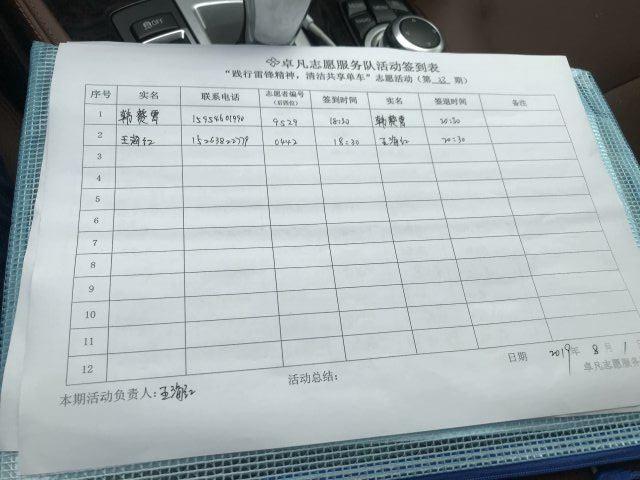 OFF
卓凡志愿服务队活动签到表
“践行雷锋精神，清洁共享单车”志愿活动（第 12 期）
序号 实名 联系电话 志愿者编号（后四位） 签到时间 实名 签退时间 备注
1 韩燕雪 15954601990 9529 18:30 韩燕雪 20:30
2 王海红 15263822779 0442 18:30 王海红 20:30
3
4
5
6
7
8
9
10
11
12
日期 2019年 8 月 1
本期活动负责人：王海红 活动总结： 卓凡志愿服务